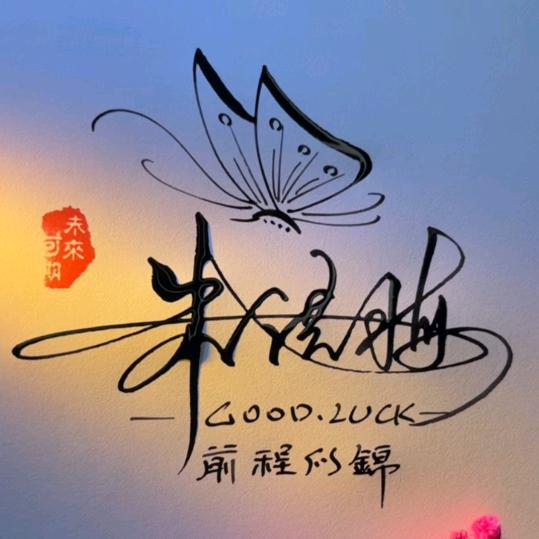 未來
可期
朱
GOOD.LUCK
前程似錦